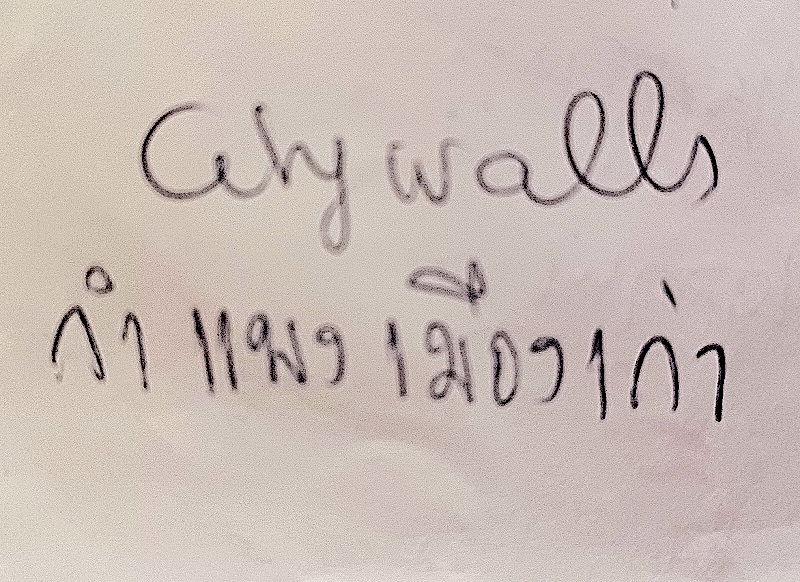 City walls
กำแพงเมืองเก่า